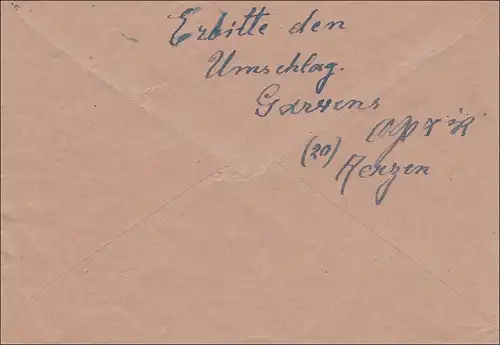 Erbitte den
Umschlag.
Garvens
(20) Aerzen